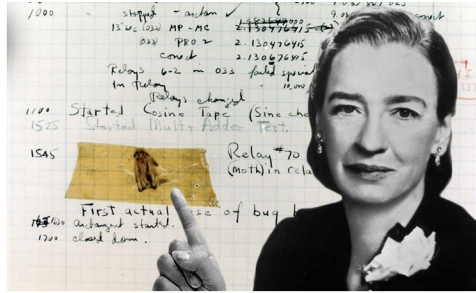 1000 stopped - arctan ✓
13°uc (032) MP-MC 2.130476415
(033) PRO 2 2.130476415
conect 2.130676415
Relays 6-2 in 033 failed special
In Relay 10,000
Relays changed
1100 Started Cosine Tape (Sine che
1525 Started Mult+ Adder Test.
1545 Relay #70
(moth) in rela
First actual se of bug b
1630 arctangent started.
1700 closed down.